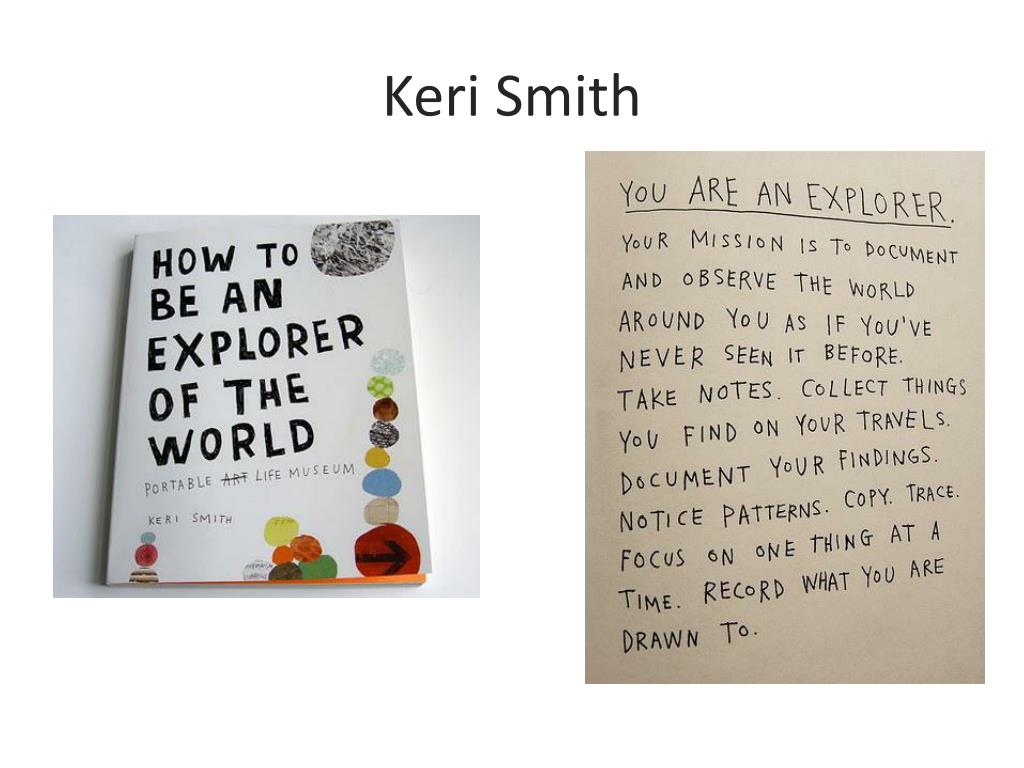 Keri Smith
HOW TO
BE AN
EXPLORER
OF THE
WORLD
PORTABLE ART LIFE MUSEUM
KERI SMITH
YOU ARE AN EXPLORER.
YOUR MISSION IS TO DOCUMENT
AND OBSERVE THE WORLD
AROUND YOU AS IF YOU'VE
NEVER SEEN IT BEFORE.
TAKE NOTES. COLLECT THINGS
YOU FIND ON YOUR TRAVELS.
DOCUMENT YOUR FINDINGS.
NOTICE PATTERNS. COPY. TRACE.
FOCUS ON ONE THING AT A
TIME. RECORD WHAT YOU ARE
DRAWN TO.